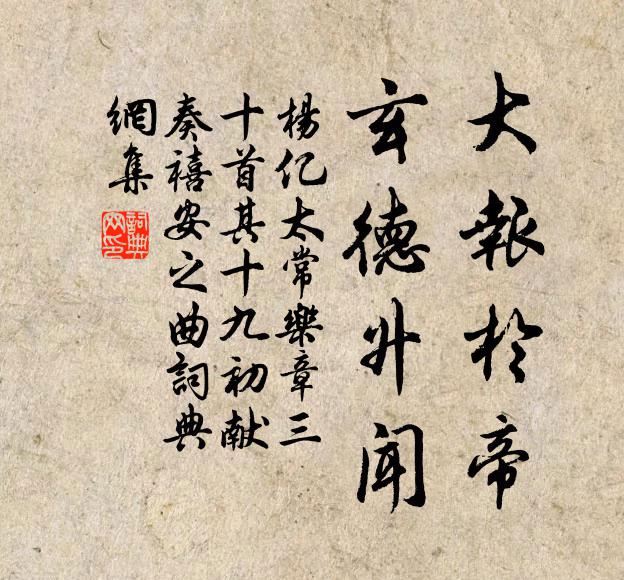 大報於帝
玄德升聞
楊亿太常樂章三
十首其十九初献
奏禧安之曲詞典
網集
詞典
网印